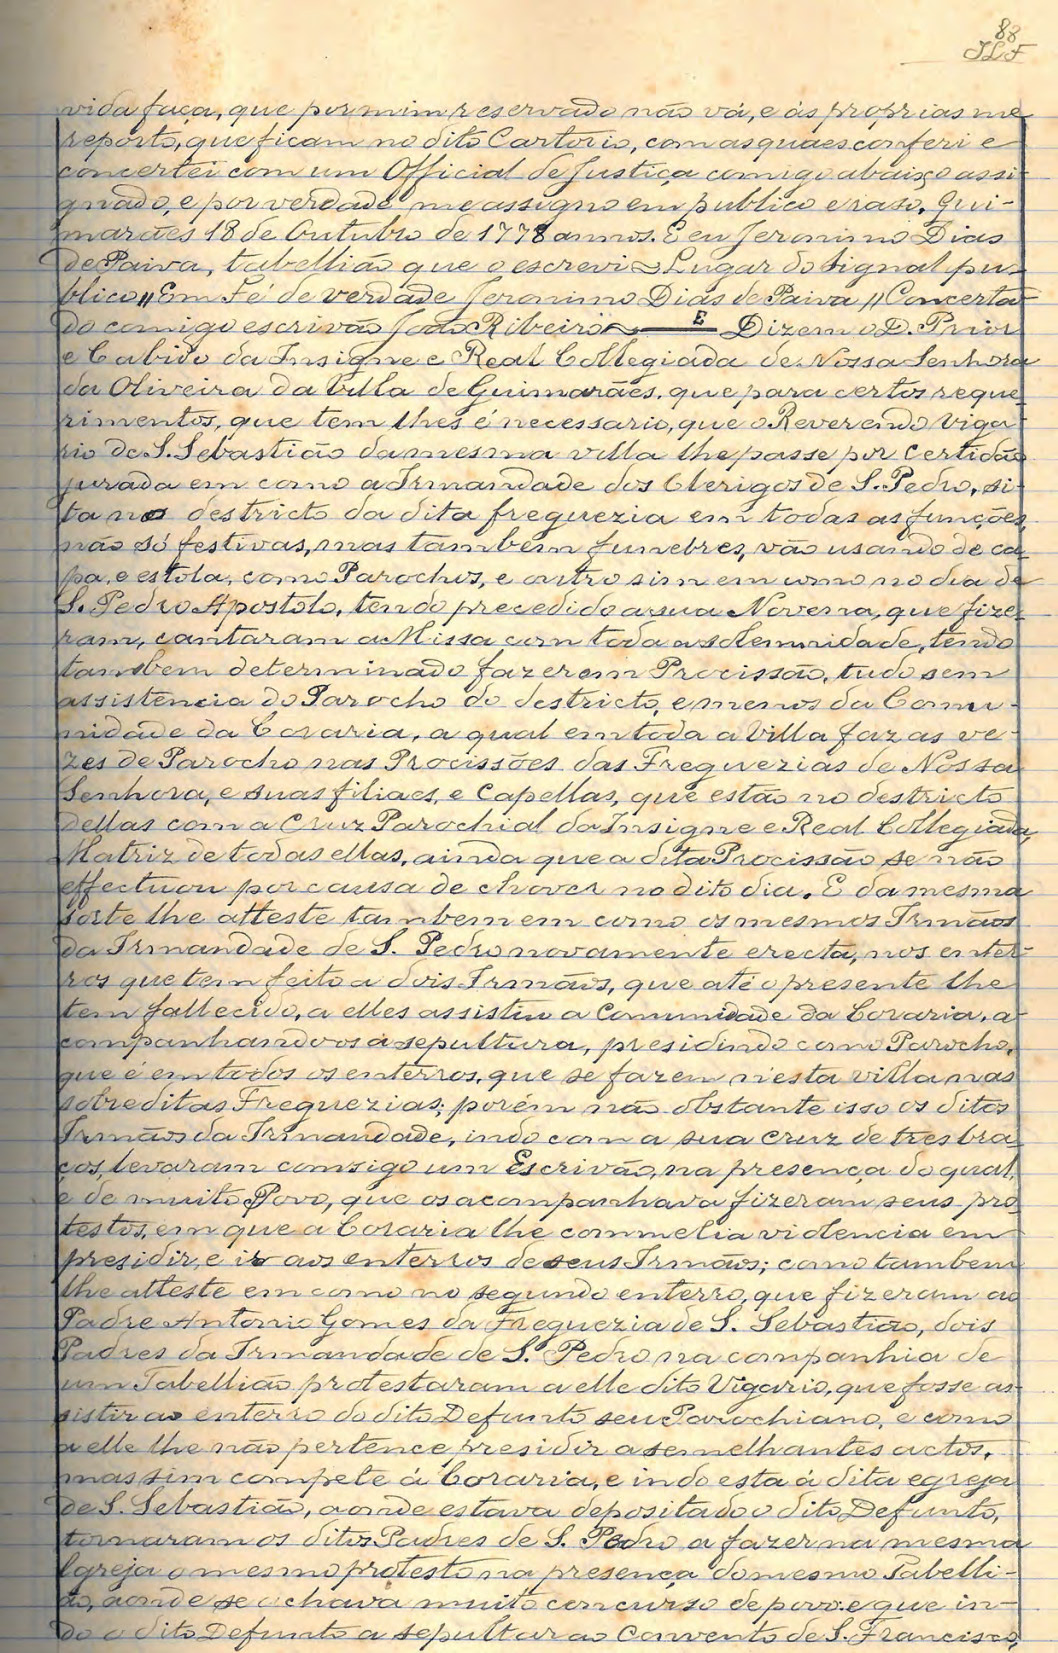 88
JLF
vida faça, que por mim reservado não vá, e ás proprias me
reporto, que ficam no dito Cartorio, com as quaes conferi e
concertei com um Official de Justiça comigo abaixo assi-
gnado, e por verdade me assigno em publico e raso. Gui-
marães 18 de Outubro de 1778 annos. E eu Jeronimo Dias
de Paiva, tabellião que o escrevi ~ Lugar do signal pu-
blico // Em Fé de verdade Jeronimo Dias de Paiva // Concerta-
do comigo escrivão João Ribeiro ~ E Dizem o D. Prior
e Cabido da Insigne e Real Collegiada de Nossa Senhora
da Oliveira da Villa de Guimarães, que para certos reque-
rimentos, que tem lhes é necessario, que o Reverendo Viga-
rio de S. Sebastião da mesma villa lhe passe por certidão
jurada em como a Irmandade dos Clerigos de S. Pedro, si-
ta no destricto da dita freguezia em todas as funções,
não só festivas, mas tambem funebres, vão usando de ca-
pa, e estola, como Parochos, e outro sim em como no dia de
S. Pedro Apostolo, tendo precedido a sua Novena, que fize-
ram, cantaram a Missa com toda a solemnidade, tendo
tambem determinado fazerem Procissão, tudo sem
assistencia do Parocho do destricto, e menos da Commu-
nidade da Coraria, a qual em toda a Villa faz as ve-
zes de Parocho nas Procissões das Freguezias de Nossa
Senhora, e suas filiaes, e Capellas, que estão no destricto
dellas com a Cruz Parochial da Insigne e Real Collegiada,
Matriz de todas ellas, ainda que a dita Procissão se não
effectuou por causa de chover no dito dia. E da mesma
sorte lhe atteste tambem em como os mesmos Irmãos
da Irmandade de S. Pedro novamente erecta, nos enter-
ros que tem feito a dois Irmãos, que até o presente lhe
tem fallecido, a elles assistiu a Communidade da Coraria, a-
companhando-os á sepultura, presidindo como Parocho,
que é em todos os enterros, que se fazem n'esta villa nas
sobreditas Freguezias; porém não obstante isso os ditos
Irmãos da Irmandade, indo com a sua cruz de tres bra-
ços, levaram comsigo um Escrivão, na presença do qual,
e de muito Povo, que os acompanhava fizeram seus pro-
testos, em que a Coraria lhe commetia violencia em
presidir, e ir aos enterros de seus Irmãos; como tambem
lhe atteste em como no segundo enterro, que fizeram ao
Padre Antonio Gomes da Freguezia de S. Sebastião, dois
Padres da Irmandade de S. Pedro na companhia de
um Tabellião protestaram a elle dito Vigario, que fosse as-
sistir ao enterro do dito Defunto seu Parochiano, e como
a elle lhe não pertence presidir a semelhantes actos,
mas sim compete á Coraria, e indo esta á dita egreja
de S. Sebastião, aonde estava depositado o dito Defunto,
tornaram os ditos Padres de S. Pedro a fazer na mesma
Igreja o mesmo protesto na presença do mesmo Tabelli-
ão, aonde se achava muito concurso de povo. e que in-
do o dito Defunto a sepultar ao Convento de S. Francisco,